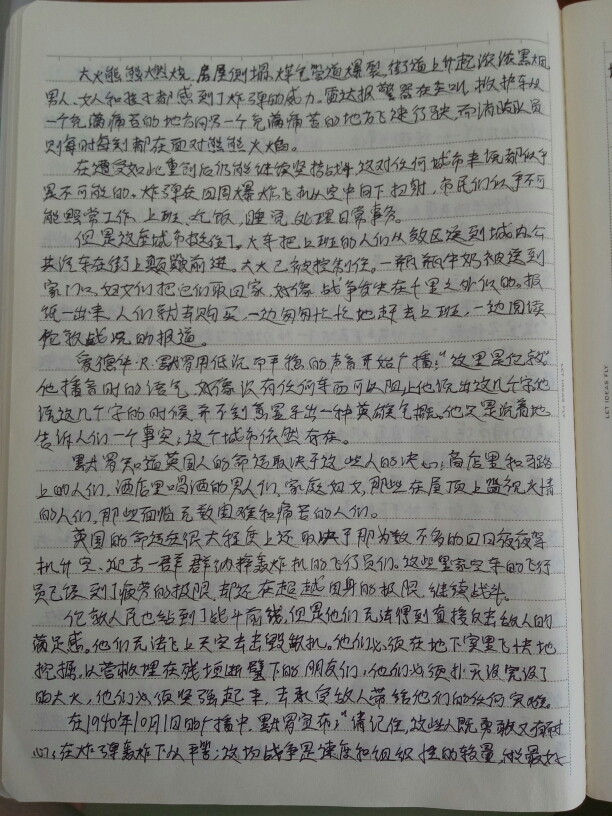 大火熊熊燃烧,房屋倒塌,煤气管道爆裂,街道上升起浓浓黑烟
男人、女人和孩子都感到了炸弹的威力。雷达报警器在尖叫,救护车从
一个充满痛苦的地方向另一个充满痛苦的地方飞速行驶,而消防队员
则每时每刻都在面对熊熊火焰。
在遭受如此重创后仍能继续坚持战斗,这对任何城市来说都似乎
是不可能的。炸弹在四周爆炸,飞机从空中向下扫射,市民们似乎不可
能照常工作、上班、吃饭,睡觉,处理日常事务。
但是这座城市挺住了。火车把上班的人们从郊区送到城内,公
共汽车在街上颠颠前进。大火已被控制住。一瓶瓶牛奶被送到
家门口,妇女们把它们取回家,好像战争发生在千里之外似的。报
纸一出来,人们就去购买,一边匆匆忙忙地赶去上班,一边阅读
伦敦战况的报道。
爱德华·R·默罗用低沉而平稳的声音开始广播:“这里是伦敦。”
他播音时的语气,好像没有任何东西可以阻止他说出这几个字,他
说这几个字的时候并不刻意显示出一种英雄气概。他只是沉着地
告诉人们一个事实:这个城市依然存在。
默罗知道英国人的命运取决于这些人的决心:商店里和马路
上的人们,酒店里喝酒的男人们,家庭妇女,那些在屋顶上监视火情
的人们,那些面临无数困难和痛苦的人们。
英国的命运在很大程度上还取决于那为数不多的日日夜夜驾
机升空、迎击一群群纳粹轰炸机的飞行员们。这些皇家空军的飞行
员已达到了疲劳的极限,却还在超越自身的极限,继续战斗。
伦敦人民也站到了战斗前线,但是他们无法得到直接反击敌人的
满足感。他们无法飞上天空去击毁敌机。他们必须在地下室里飞快地
挖掘,以营救埋在残垣断壁下的朋友们,他们必须扑灭没完没了
的大火,他们必须坚强起来,去承受敌人带给他们的任何灾难。
在1940年10月1日的广播中,默罗宣布:“请记住,这些人既勇敢又有耐
心,在炸弹轰炸下人人平等;这场战争是速度和组织性的较量,